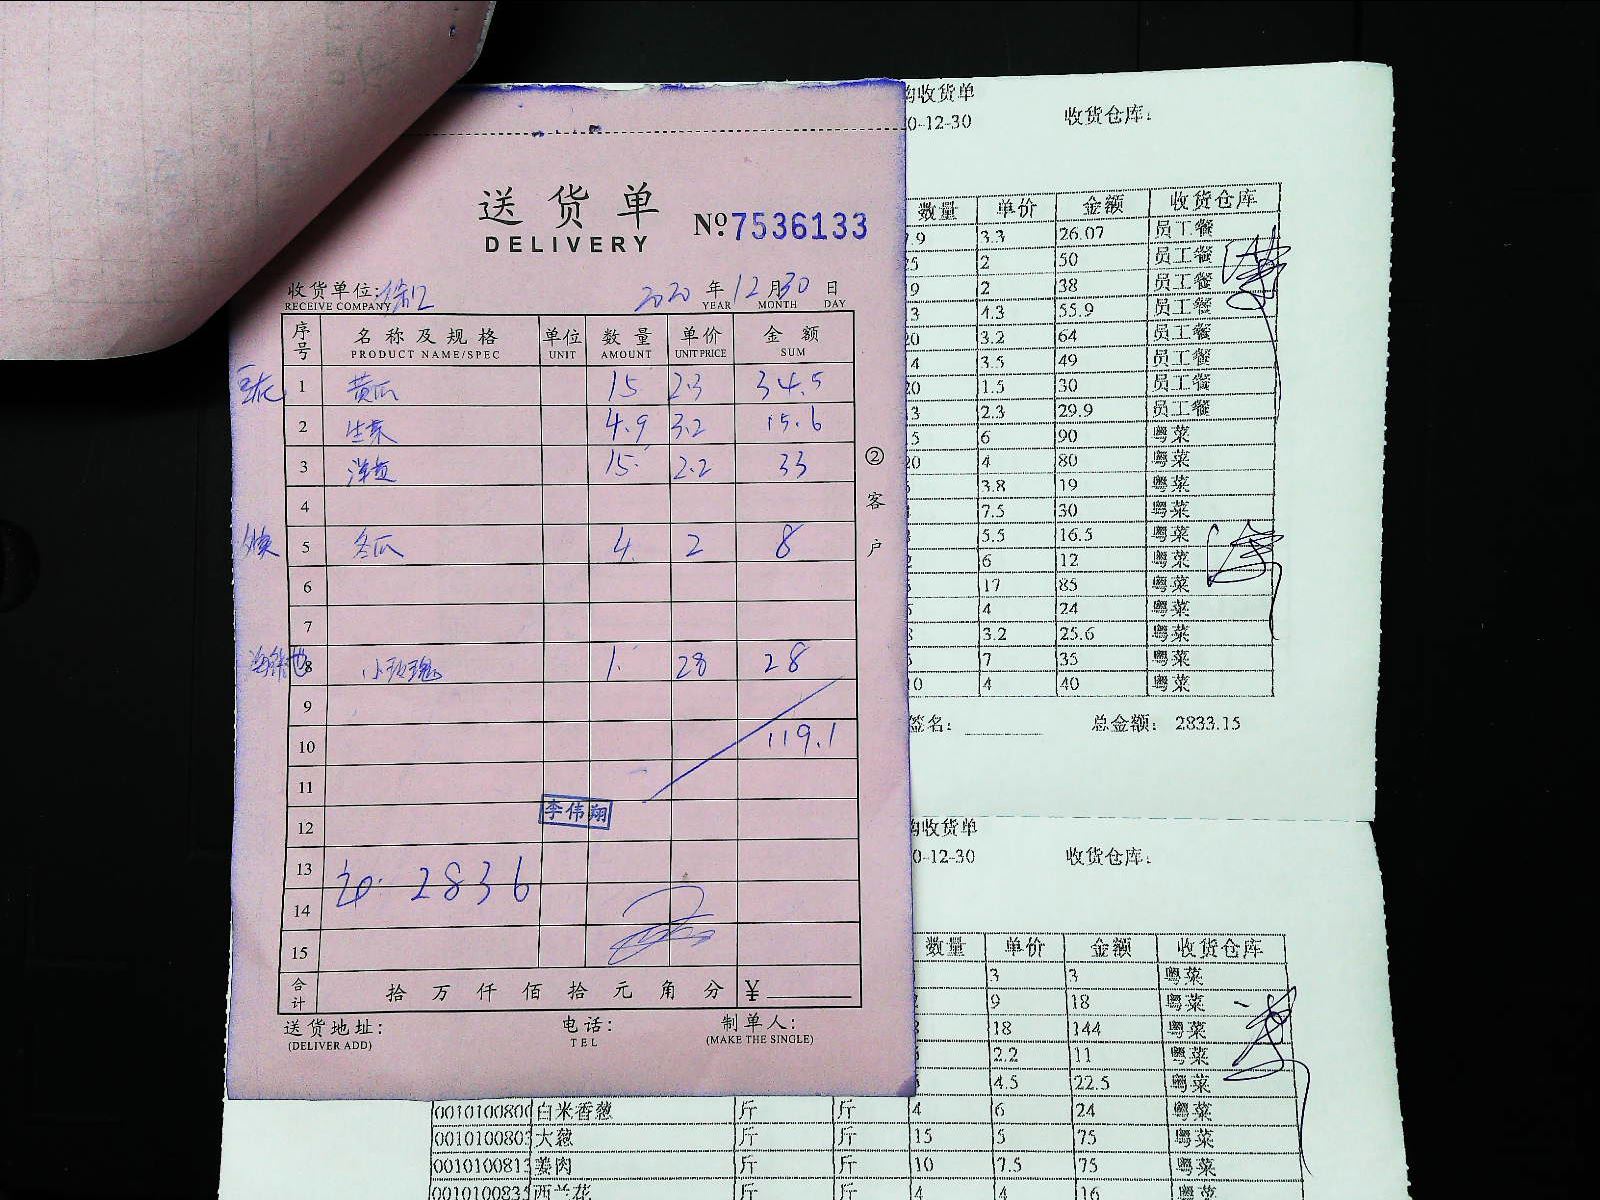 送货单
DELIVERY
№7536133
收货单位:
RECEIVE COMPANY
2020 年 12 月 30 日
YEAR MONTH DAY
序号 名称及规格 单位 数量 单价 金额
PRODUCT NAME/SPEC UNIT AMOUNT UNIT PRICE SUM
1 黄瓜 15 2.3 34.5
2 生菜 4.9 3.2 15.6
3 洋葱 15 2.2 33
4
5 冬瓜 4 2 8
6
7
8 小玫瑰 1 28 28
9
10 119.1
11
12 李伟翔
13 2836
14
15
合计 拾 万 仟 佰 拾 元 角 分 ¥
送货地址: 电话: 制单人:
(DELIVER ADD) TEL (MAKE THE SINGLE)
②客户
购收货单
0-12-30 收货仓库:
数量 单价 金额 收货仓库
.9 3.3 26.07 员工餐
5 2 50 员工餐
9 2 38 员工餐
3 4.3 55.9 员工餐
20 3.2 64 员工餐
4 3.5 49 员工餐
20 1.5 30 员工餐
3 2.3 29.9 员工餐
5 6 90 粤菜
20 4 80 粤菜
3.8 19 粤菜
7.5 30 粤菜
5.5 16.5 粤菜
6 12 粤菜
17 85 粤菜
4 24 粤菜
3.2 25.6 粤菜
7 35 粤菜
0 4 40 粤菜
签名: 总金额: 2833.15
购收货单
0-12-30 收货仓库:
数量 单价 金额 收货仓库
3 3 粤菜
9 18 粤菜
18 144 粤菜
2.2 11 粤菜
4.5 22.5 粤菜
001010080 白米香葱 斤 斤 4 6 24 粤菜
001010080 大葱 斤 斤 15 5 75 粤菜
001010081 姜肉 斤 斤 10 7.5 75 粤菜
001010083 西兰花 斤 斤 4 4 16 粤菜